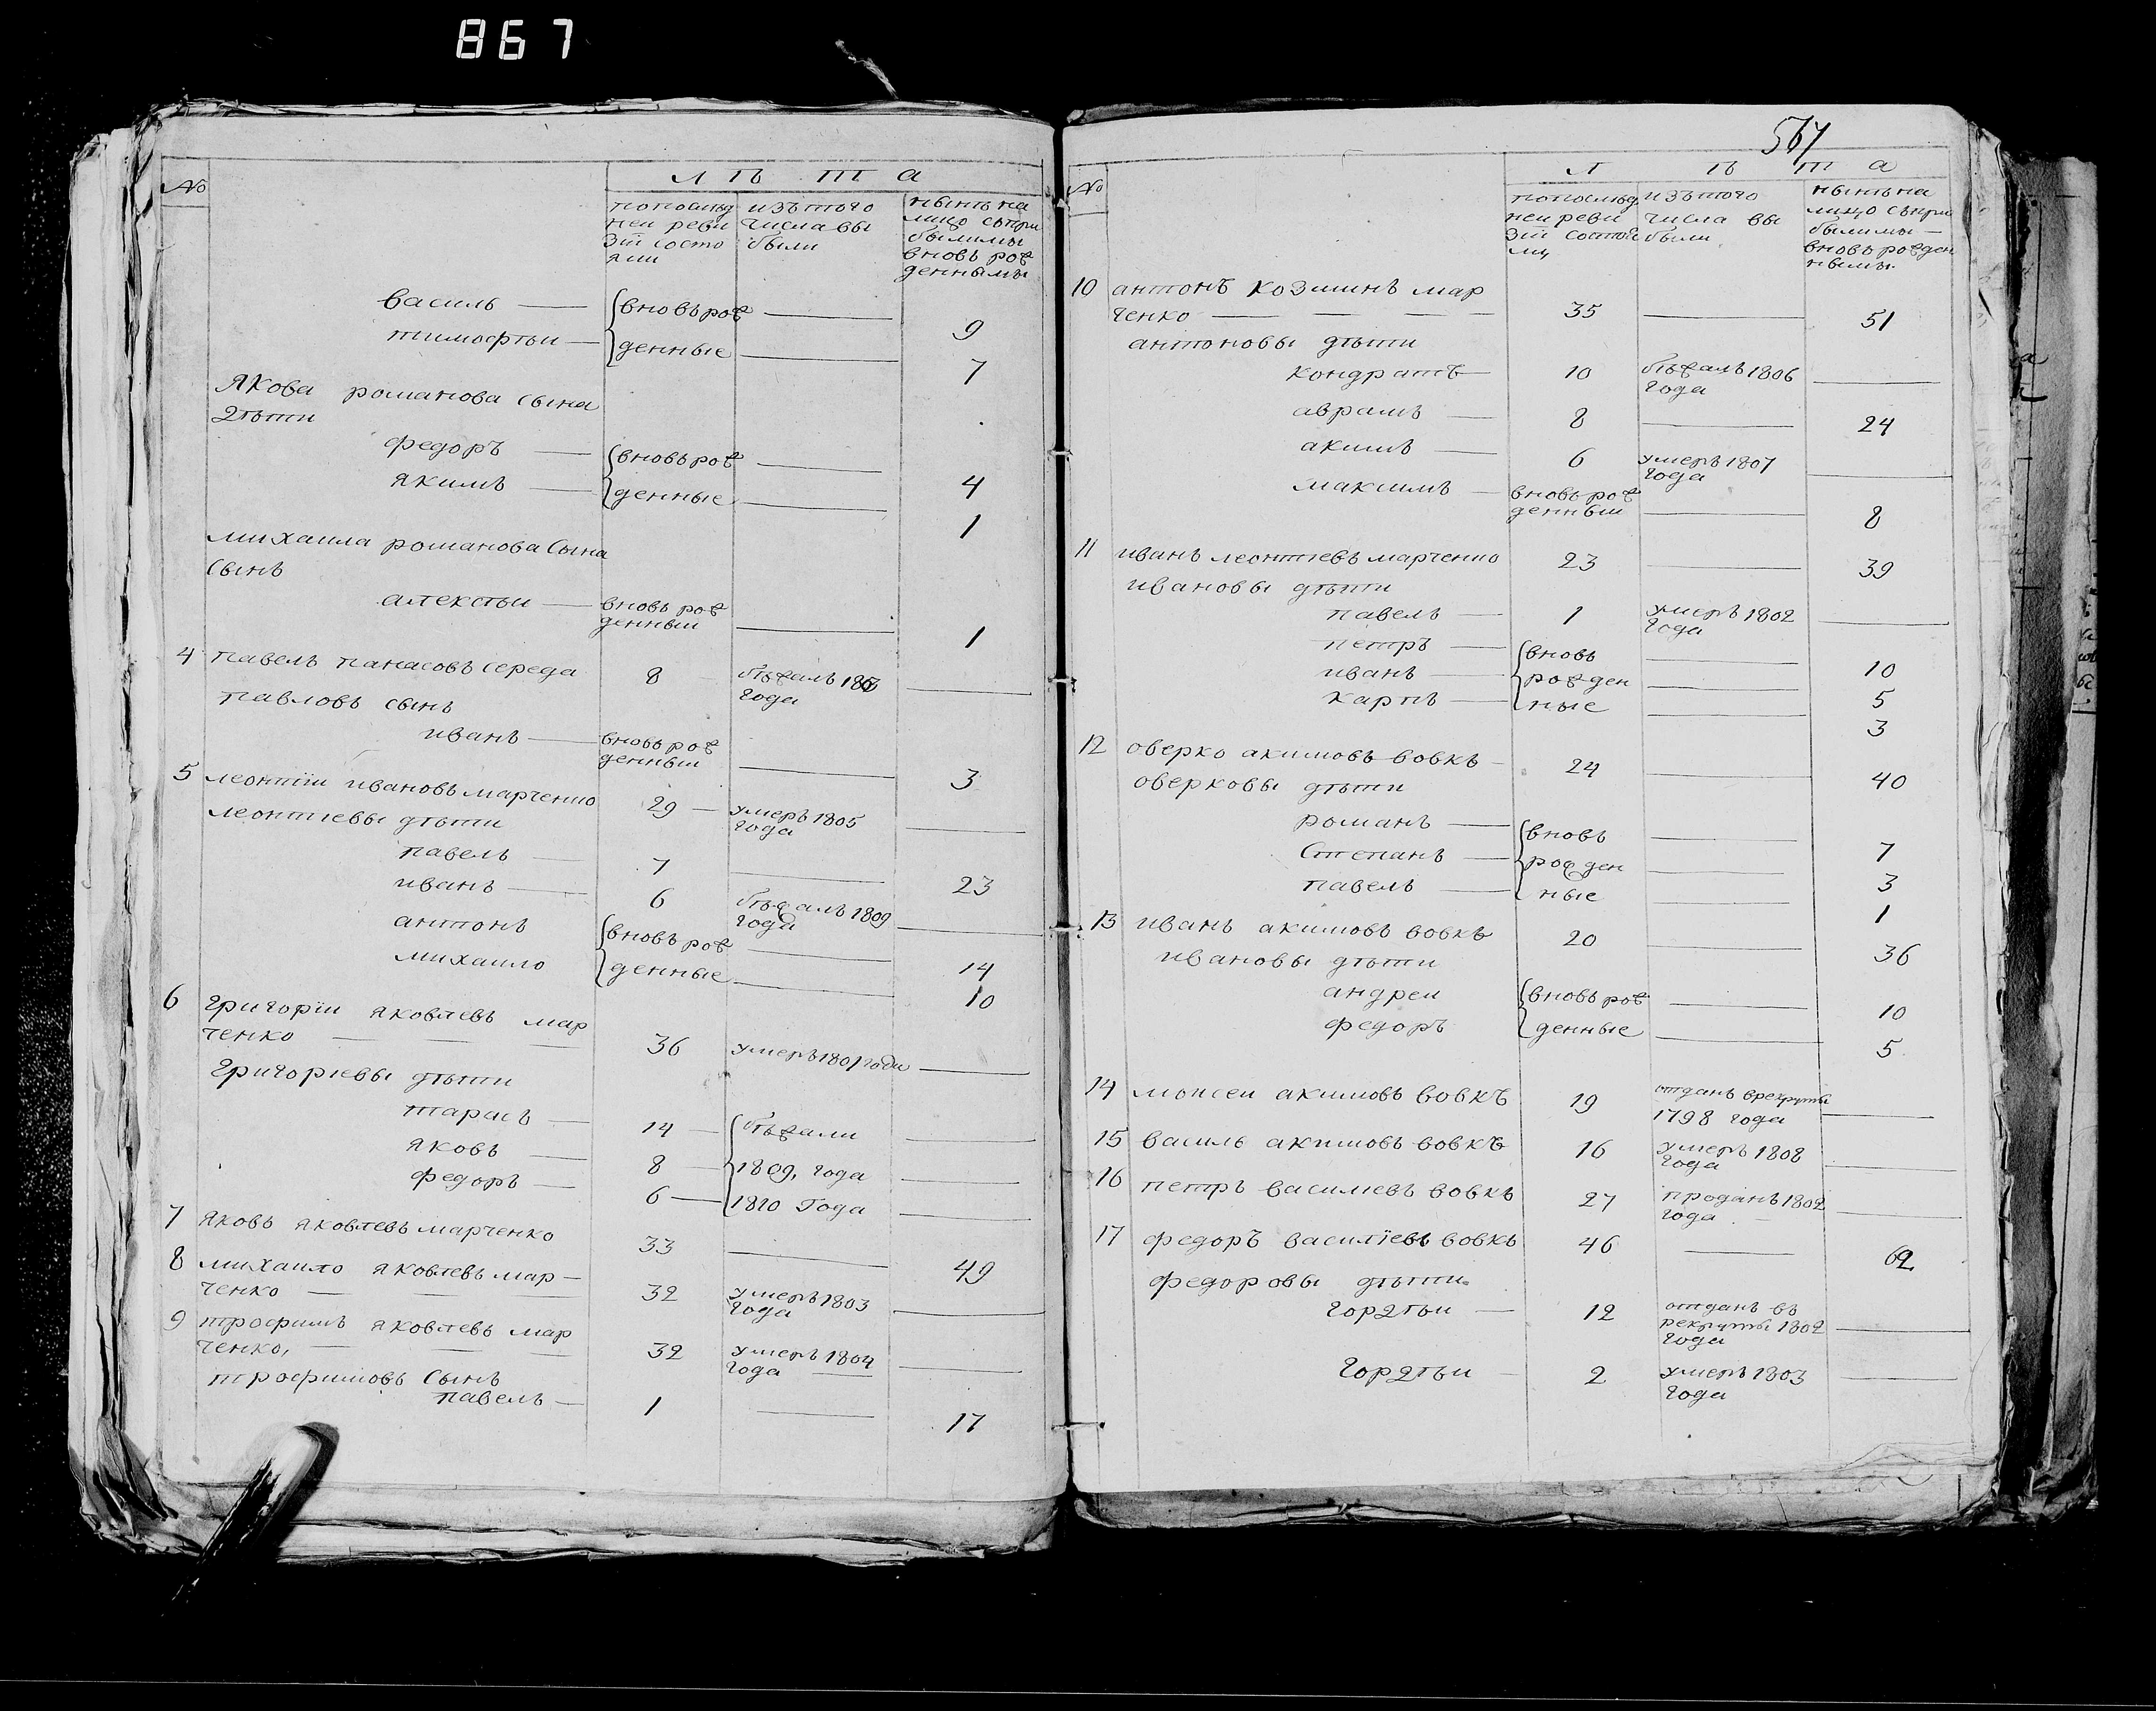 867
№
Л ѣ т а
попослѣд
ней реви
зіи состо
яли
изътого
числа вы
были
нынѣ на
лицо съпри
былымы
вновь рож
деннымы
василь — вновь рож — 9
тимофѣи — денные — 7
Якова романова сына
дѣти
федоръ — вновь рож — 4
якимъ — денные — 1
михаила романова сына
сынъ
алексѣи — вновь рож
денныи — 1
4 павелъ панасовъ середа 8 бѣжалъ
года —
павловъ сынъ
иванъ — вновь рож
денныи — 3
5 леонтіи ивановъ марченко 29 — умеръ 1805
года —
леонтіевы дѣти
павелъ — 7 — 23
иванъ — 6 бѣжалъ 1809
года —
антонъ вновь рож — 14
михаило денные — 10
6 григоріи яковлевъ мар
ченко — — — 36 умеръ 1801 года —
Григоріевы дѣти
тарасъ — 14 — бѣжали —
яковъ — 8 — 1809, года —
федоръ — 6 — 1810 Года —
7 яковъ яковлевъ марченко 33 — 49
8 михаило яковлевъ мар —
ченко — — — 32 умеръ 1803
года —
9 трофимъ яковлевъ мар
ченко, — — — 32 умеръ 1804
года — —
трофимовъ сынъ
павелъ — 1 — 17
567
№
Л ѣ т а
попослѣд
ней реви
зіи состоя
ли
изътого
числа вы
были
нынѣ на
лицо съпри
былымы —
вновь рожден
нымы.
10 антонъ козминъ мар
ченко — — — — 35 — 51
антоновы дѣти
кондратъ — 10 бѣжалъ 1806
года —
аврамъ — 8 — 24
акимъ — 6 умеръ 1807
года —
максимъ — вновь рож
денныи — 8
11 иванъ леонтіевъ марченко 23 — 39
ивановы дѣти
павелъ — 1 умеръ 1802
года —
петръ — вновь — 10
иванъ — рожден — 5
карпъ — ные — 3
12 оверко акимовъ вовкъ — 24 — 40
оверковы дѣти
романъ — вновь — 7
Степанъ — рожден — 3
павелъ — ные — 1
13 иванъ акимовъ вовкъ 20 — 36
ивановы дѣти
андреи вновь рож — 10
федоръ денные — 5
14 моисеи акимовъ вовкъ 19 отданъ врекруты
1798 года —
15 василь акимовъ вовкъ 16 умеръ 1808
года —
16 петръ василіевъ вовкъ 27 проданъ 1802
года — —
17 федоръ василіевъ вовкъ 46 — 62
федоровы дѣти
гордѣи — 12 отданъ въ
рекруты 1802
года —
гордѣи — 2 умеръ 1803
года —